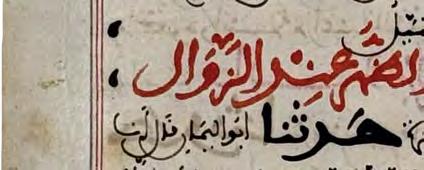 الظهر عند الزوال
حدثنا ابو اليمان قال انا